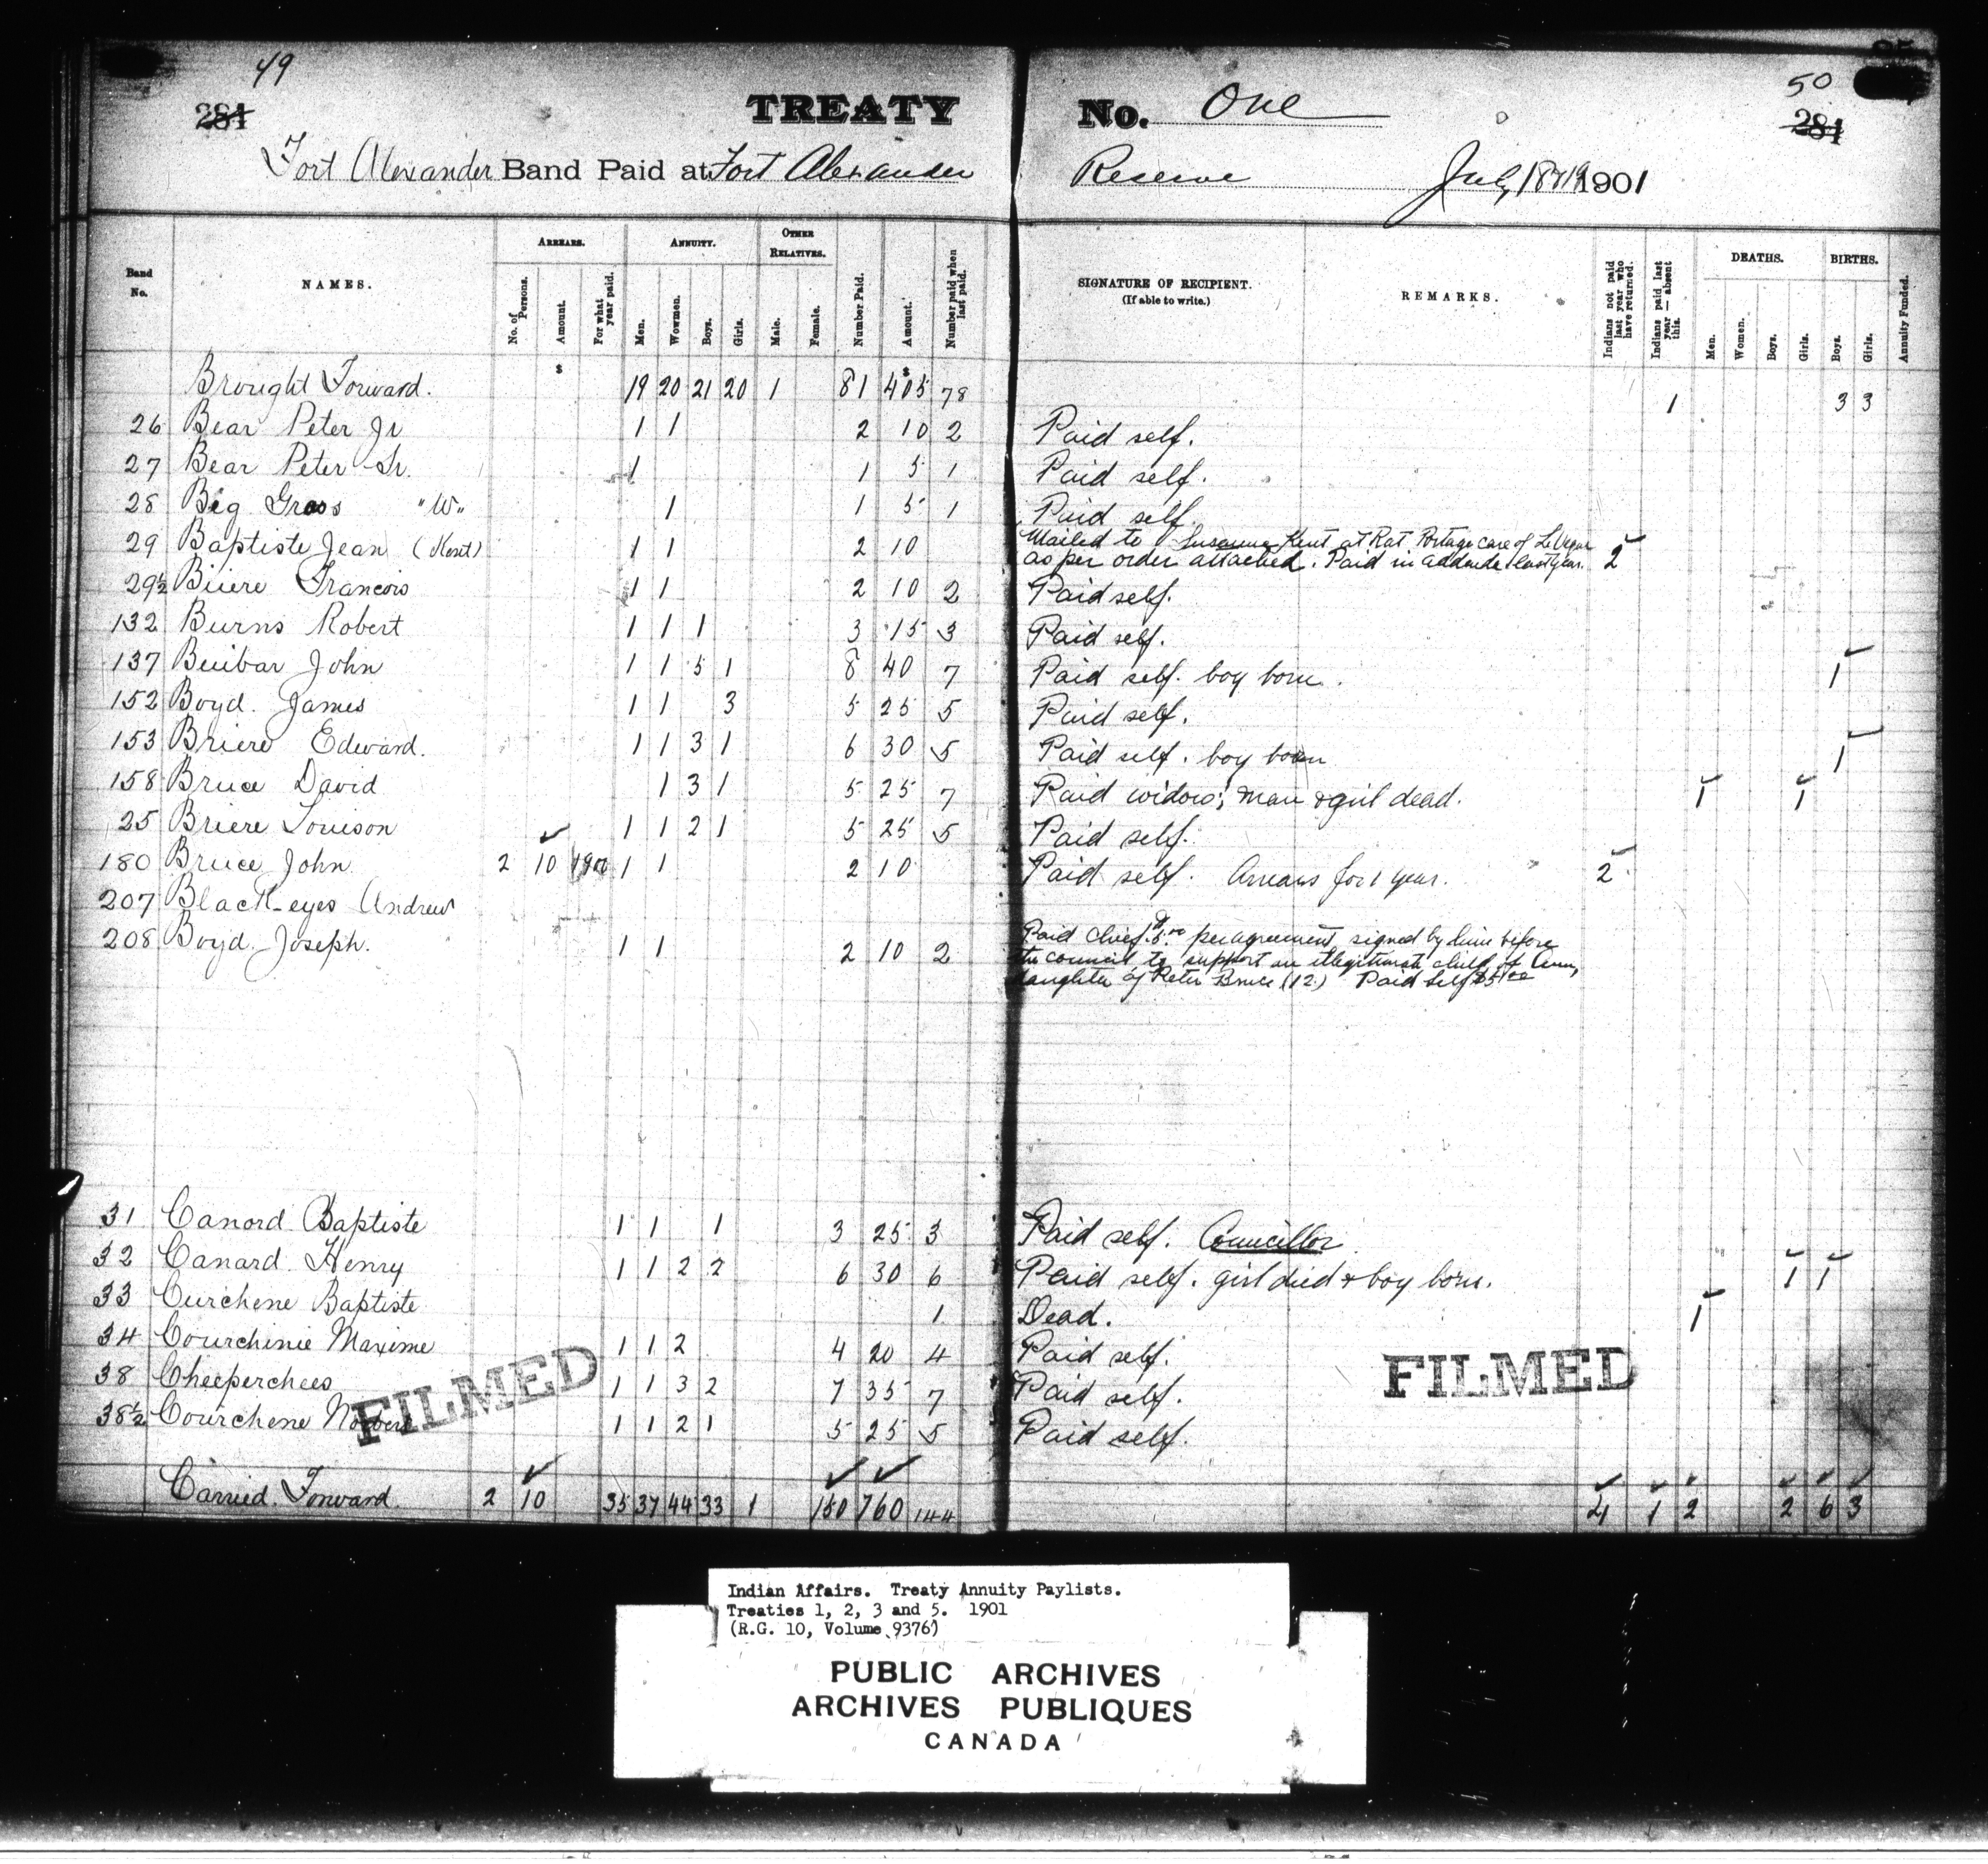 49
50
281
281
TREATY No. One
Fort Alexander Band Paid at Fort Alexander Reserve July 18 & 19 1901
Band No. NAMES. ARREARS. No. of Persons. Amount. For what year paid. ANNUITY. Men. Wowmen. Boys. Girls. OTHER RELATIVES. Male. Female. Number Paid. Amount. Number paid when last paid. SIGNATURE OF RECIPIENT. (If able to write.) REMARKS. Indians not paid last year who have returned. Indians paid last year — absent this. DEATHS. Men. Women. Boys. Girls. BIRTHS. Boys. Girls. Annuity Funded.
$ $
Brought Forward. 19 20 21 20 1 81 405 78 1 3 3
26 Bear Peter Jr 1 1 2 10 2 Paid self.
27 Bear Peter Sr. 1 1 5 1 Paid self.
28 Big Grass "W" 1 1 5 1 Paid self
29 Baptiste Jean (Kent) 1 1 2 10 Mailed to Susanne Kent at Rat Portage care of
as per order attached. Paid in addenda last year. 2
29½ Briere Francois 1 1 2 10 2 Paid self.
132 Burns Robert 1 1 1 3 15 3 Paid self.
137 Buibar John 1 1 5 1 8 40 7 Paid self. boy born. 1
152 Boyd. James 1 1 3 5 25 5 Paid self.
153 Briere Edward. 1 1 3 1 6 30 5 Paid self. boy born 1
158 Bruce David 1 3 1 5 25 7 Paid widow; man & girl dead. 1 1
25 Briere Louison 1 1 2 1 5 25 5 Paid self.
180 Bruce John 2 10 1900 1 1 2 10 Paid self. Arrears for 1 year. 2
207 Black-eyes Andrew
208 Boyd Joseph. 1 1 2 10 2 Paid chief $5.00 per agreement signed by him before
the council to support an illegitimate child of Ann,
daughter of Peter Bruce (12.) Paid self $5.00
31 Canord Baptiste 1 1 1 3 25 3 Paid self. Councillor
32 Canard Henry 1 1 2 2 6 30 6 Paid self. girl died & boy born. 1 1
33 Curchene Baptiste 1 Dead. 1
34 Courchinie Maxime 1 1 2 4 20 4 Paid self.
38 Cheeperchees 1 1 3 2 7 35 7 Paid self.
38½ Courchene Norbert 1 1 2 1 5 25 5 Paid self.
FILMED
FILMED
Carried Forward. 2 10 35 37 44 33 1 150 760 144 4 1 2 2 6 3
Indian Affairs. Treaty Annuity Paylists.
Treaties 1, 2, 3 and 5. 1901
(R.G. 10, Volume 9376)
PUBLIC ARCHIVES
ARCHIVES PUBLIQUES
CANADA